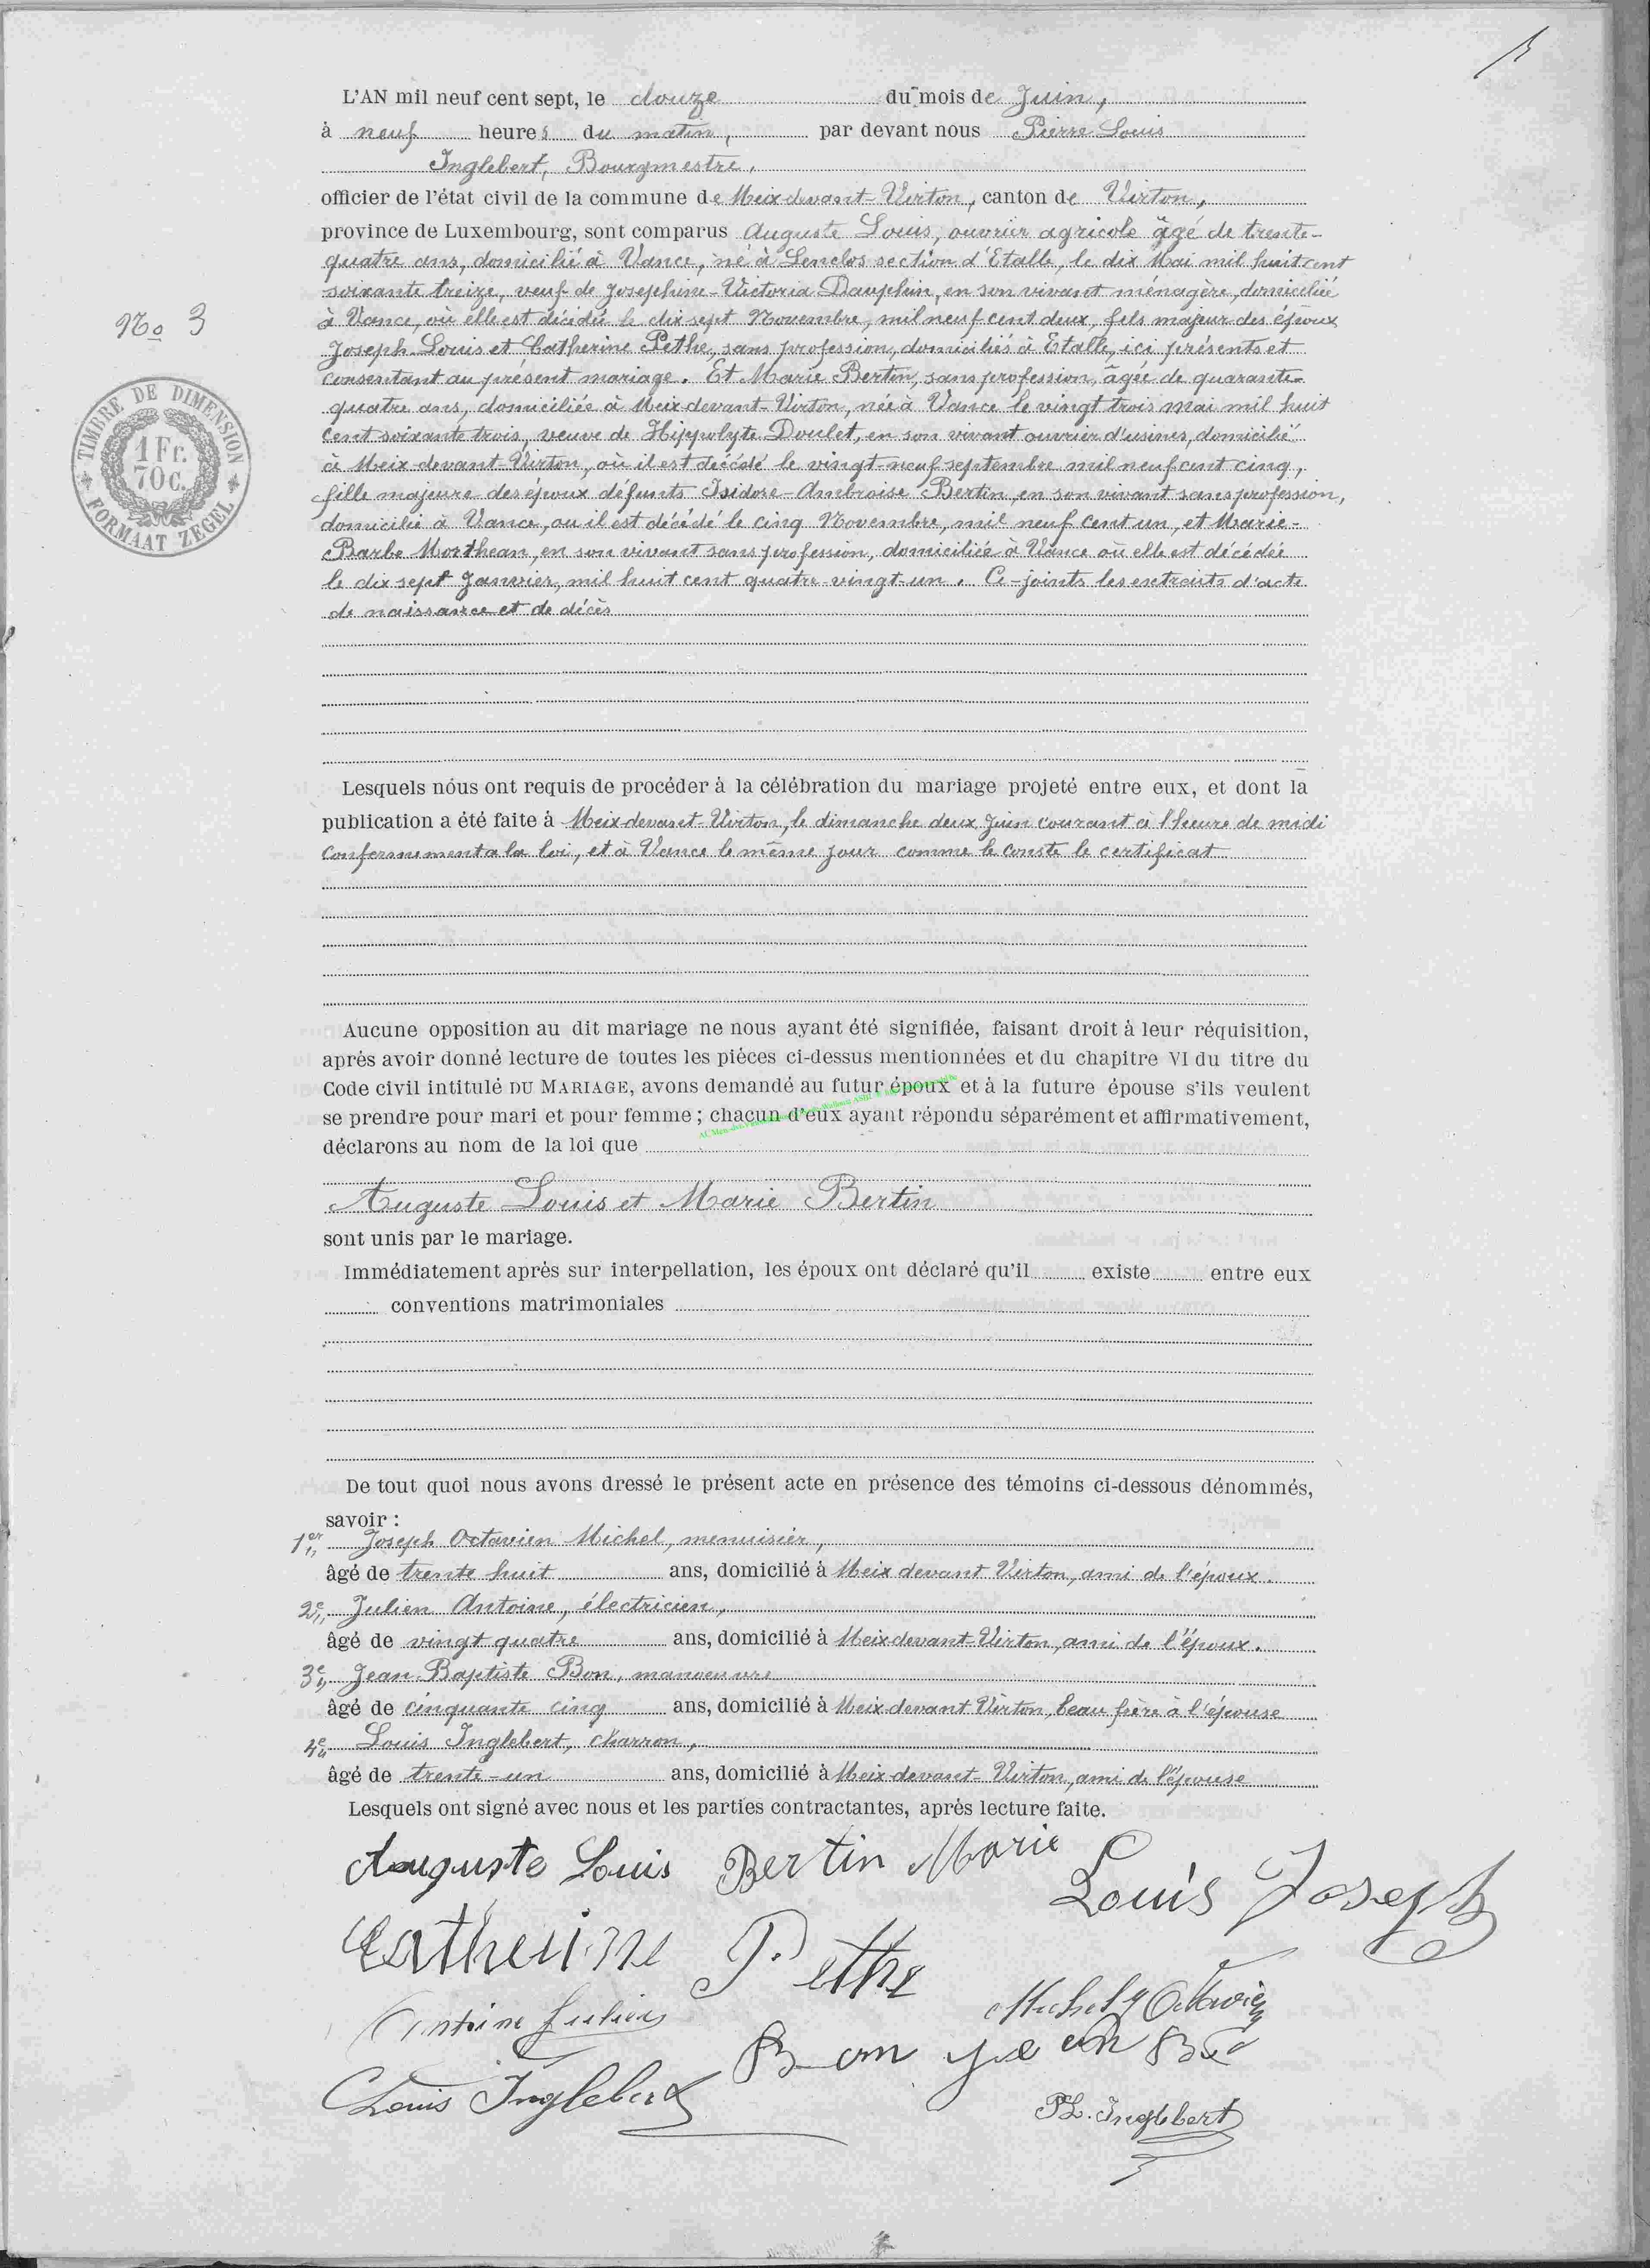 L'AN mil neuf cent sept, le douze du mois de Juin,
à neuf heures du matin, par devant nous Pierre Louis
Inglebert, Bourgmestre,
officier de l'état civil de la commune de Meix-devant-Virton, canton de Virton,
province de Luxembourg, sont comparus Auguste Louis, ouvrier agricole âgé de trente-
quatre ans, domicilié à Vance, né à Lenclos section d'Etalle, le dix Mai mil huit cent
soixante treize, veuf de Joséphine-Victoria Dauphin, en son vivant ménagère, domiciliée
No 3
à Vance, où elle est décédée le dix sept Novembre, mil neuf cent deux, fils majeur des époux
Joseph Louis et Catherine Pethe, sans profession, domiciliés à Etalle, ici présents et
consentant au présent mariage. Et Marie Bertin, sans profession, âgée de quarante-
quatre ans, domiciliée à Meix-devant-Virton, née à Vance le vingt trois mai mil huit
cent soixante trois, veuve de Hippolyte Doulet, en son vivant ouvrier d'usines, domicilié
à Meix-devant-Virton, où il est décédé le vingt-neuf septembre mil neuf cent cinq,
fille majeure des époux défunts Isidore-Ambroise Bertin, en son vivant sans profession,
domicilié à Vance, ou il est décédé le cinq Novembre, mil neuf cent un, et Marie-
Barbe Morthean, en son vivant sans profession, domiciliée à Vance où elle est décédée
le dix sept Janvier, mil huit cent quatre-vingt-un. Ci-joints les extraits d'acte
de naissance et de décès
TIMBRE DE DIMENSION
1 Fr.
70 c.
FORMAAT ZEGEL
Lesquels nous ont requis de procéder à la célébration du mariage projeté entre eux, et dont la
publication a été faite à Meix-devant-Virton, le dimanche deux Juin courant à l'heure de midi
Conformement a la loi, et à Vance le même jour comme le conste le certificat
Aucune opposition au dit mariage ne nous ayant été signifiée, faisant droit à leur réquisition,
après avoir donné lecture de toutes les pièces ci-dessus mentionnées et du chapitre VI du titre du
Code civil intitulé DU MARIAGE, avons demandé au futur époux et à la future épouse s'ils veulent
se prendre pour mari et pour femme ; chacun d'eux ayant répondu séparément et affirmativement,
déclarons au nom de la loi que
Auguste Louis et Marie Bertin
sont unis par le mariage.
Immédiatement après sur interpellation, les époux ont déclaré qu'il existe entre eux
conventions matrimoniales
De tout quoi nous avons dressé le présent acte en présence des témoins ci-dessous dénommés,
savoir :
1er Joseph Octavien Michel, menuisier,
âgé de trente huit ans, domicilié à Meix devant Virton, ami de l'époux.
2e Julien Antoine, électricien,
âgé de vingt quatre ans, domicilié à Meix devant-Virton, ami de l'époux.
3e Jean Baptiste Bon, manoeuvre
âgé de cinquante cinq ans, domicilié à Meix devant Virton, beau frère à l'épouse
4e Louis Inglebert, charron,
âgé de trente-un ans, domicilié à Meix-devant-Virton, ami de l'épouse
Lesquels ont signé avec nous et les parties contractantes, après lecture faite.
Auguste Louis Bertin Marie Louis Joseph
Catherine Pethe
Antoine Julien Michel J Octavien
Bon Jean Bte
Louis Inglebert
PL. Inglebert